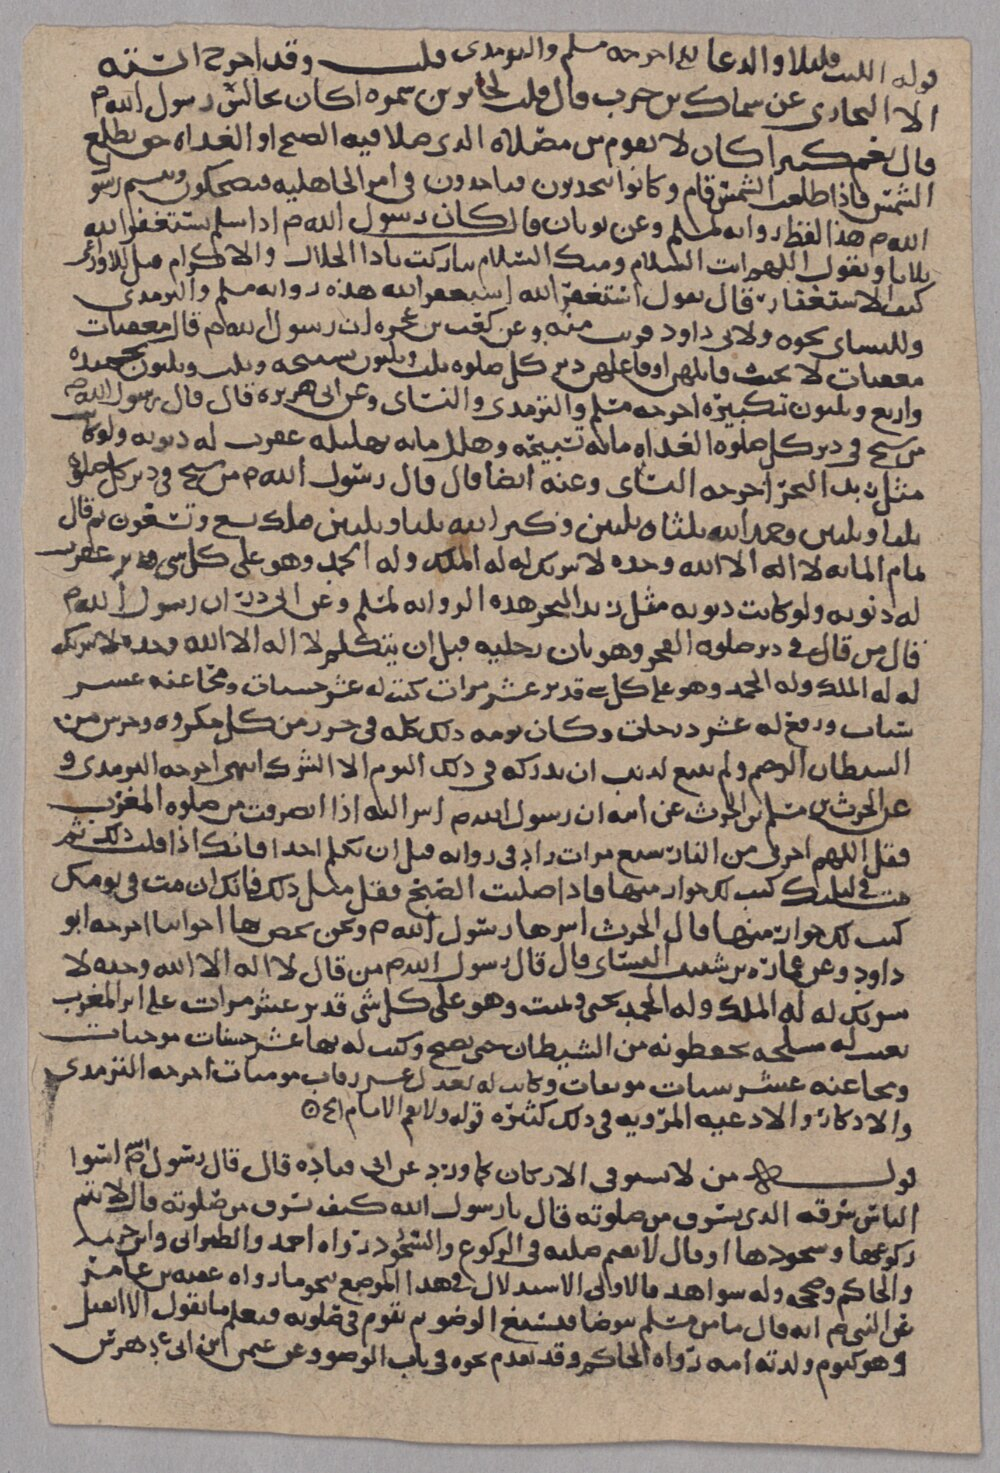 قوله اللبث قليلا والدعا الخ اخرجه مسلم والترمذى قلت وقد اخرج الستة
الا البخارى عن سماك بن حرب قال قلت لجابر بن سمره اكان تجالس رسول الله م
قال نعم كثيرا كان لا يقوم من مصلاه الذى صلا فيه الصبح او الغداه حتى تطلع
الشمس فاذا طلعت الشمس قام وكانوا يتحدثون فياخذون فى امر الجاهليه فيضحكون ويتبسم رسول
الله م هذا لفظ روايه لمسلم وعن ثوبان قال كان رسول الله م اذا سلم يستغفر الله
ثلاثا ويقول اللهم انت السلام ومنك السلام تباركت ياذا الجلال والاكرام قيل للاوزاعى
كيف الاستغفار قال يقول استغفر الله استغفر الله هذه روايه مسلم والترمذى
وللنساى نحوه ولابى داود قريب منه وعن كعب بن عجره ان رسول الله م قال معقبات
معقبات لا يخيب قايلهن او فاعلهن دبر كل صلوه ثلث وثلثون تسبيحه وثلث وثلثون تحميده
واربع وثلثون تكبيره اخرجه مسلم والترمذى والنساى وعن ابى هريره قال قال رسول الله م
من سبح فى دبر كل صلوه الغداه مائه تسبيحه وهلل مايه تهليله غفرت له ذنوبه ولو كانت
مثل زبد البحر اخرجه النساى وعنه ايضا قال قال رسول الله م من سبح فى دبر كل صلوة
ثلثا وثلثين وحمد الله ثلثا وثلثين وكبر الله ثلثا وثلثين فتلك تسع وتسعون ثم قال
تمام المايه لا اله الا الله وحده لا شريك له له الملك وله الحمد وهو على كل شى قدير غفرت
له ذنوبه ولو كانت ذنوبه مثل زبد البحر هذه الروايه لمسلم وعن ابى ذر ان رسول الله م
قال من قال فى دبر صلوه الفجر وهو ثان رجليه قبل ان يتكلم لا اله الا الله وحده لا شريك
له له الملك وله الحمد وهو على كل شى قدير عشر مرات كتب له عشر حسنات ومحا عنه عشر
سيات ورفع له عشر درجات وكان يومه ذلك كله فى حرز من كل مكروه وحرس من
الشيطان الرجيم ولم ينبغ لذنب ان يدركه فى ذلك اليوم الا الشرك انتهى اخرجه الترمذى و
عن الحرث بن مسلم بن الحرث عن ابيه ان رسول الله م اسر اليه اذا انصرفت من صلوه المغرب
فقل اللهم اجرنى من النار سبع مرات زاد فى روايه قبل ان تكلم احدا فانك اذا قلت ذلك ثم
مت فى ليلتك كتب لك جوار منها فاذا صليت الصبح فقل مثل ذلك فانك ان مت فى يومك
كتب لك جوار منها قال الحرث اسرها رسول الله م ونحن نخص بها اخواننا اخرجه ابو
داود وعن عماره بن شبيب السباى قال قال رسول الله م من قال لا اله الا الله وحده لا
شريك له له الملك وله الحمد يحى ويميت وهو على كل شى قدير عشر مرات على اثر المغرب
بعث له مسلحه يحفظونه من الشيطان حتى يصبح وكتب له بها عشر حسنات موجبات
ومحا عنه عشر سيات موبقات وكانت له بعدل عشر رقاب مومنات اخرجه الترمذى
والاذكار والادعيه المرويه فى ذلك كثيره قوله ولا يعم الامام
قوله من لا يستوفى الاركان لما ورد عن ابى قتاده قال قال رسول الله م اسوا
الناس سرقه الذى يسرق من صلوته قال يا رسول الله كيف يسرق من صلوته قال لا يتم
ركوعها وسجودها او قال لا يقيم صلبه فى الركوع والسجود رواه احمد والطبرانى وابن خزيمه
والحاكم وصححه وله شواهد فالاولى الاستدلال فى هذا الموضع بنحو ما رواه عقبه بن عامر
عن النبى م انه قال ما من مسلم يتوضا فيسبغ الوضو ثم يقوم فى صلوته فيعلم ما يقول الا انفتل
وهو كيوم ولدته امه رواه الحاكم وقد تقدم نحوه فى باب الوضو وعن